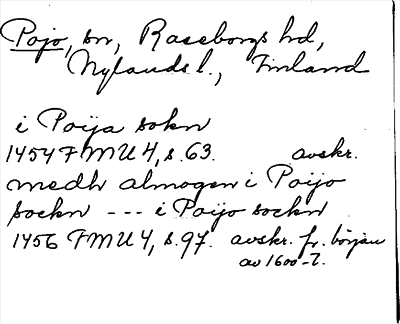 Pojo, sn, Raseborgs hd,
Nylands l., Finland
i Poija sokn
1454 FMU 4, s. 63. avskr.
medh almogen i Poijo
sockn --- i Poijo sockn
1456 FMU 4, s. 97. avskr. fr. början
av 1600-t.